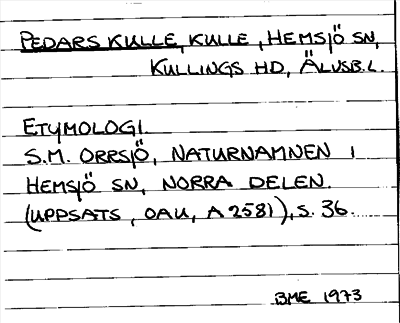 PEDARS KULLE, KULLE, HEMSJÖ SN,
KULLINGS HD, ÄLVSB.L.
ETYMOLOGI.
S.M. ORRSJÖ, NATURNAMNEN I
HEMSJÖ SN, NORRA DELEN.
(UPPSATS, OAU, A 2581), S. 36.
BME 1973